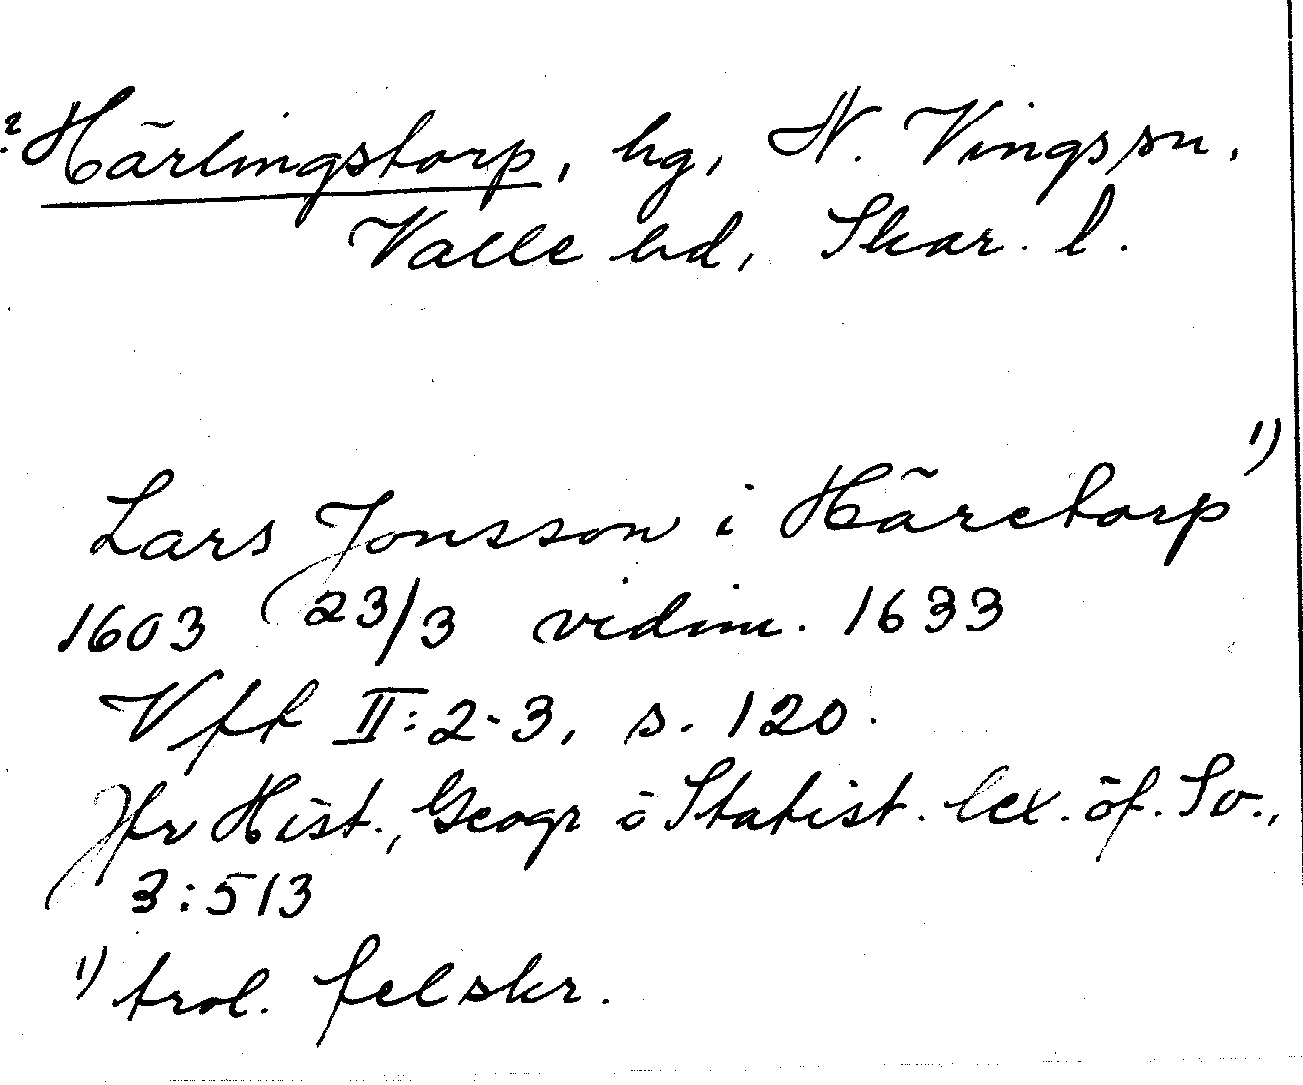 ? Härlingstorp, hg, N. Vings sn,
Valle hd, Skar. l.
Lars Jonsson i Häretorp 1)
1603 23/3 vidim. 1633
Vft II:2-3, s. 120.
Jfr Hist., Geogr o Statist. lex. öf. Sv.,
3:513
1) trol. felskr.